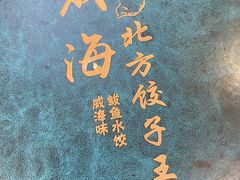 海
北方饺子王
鲅鱼水饺
威海味